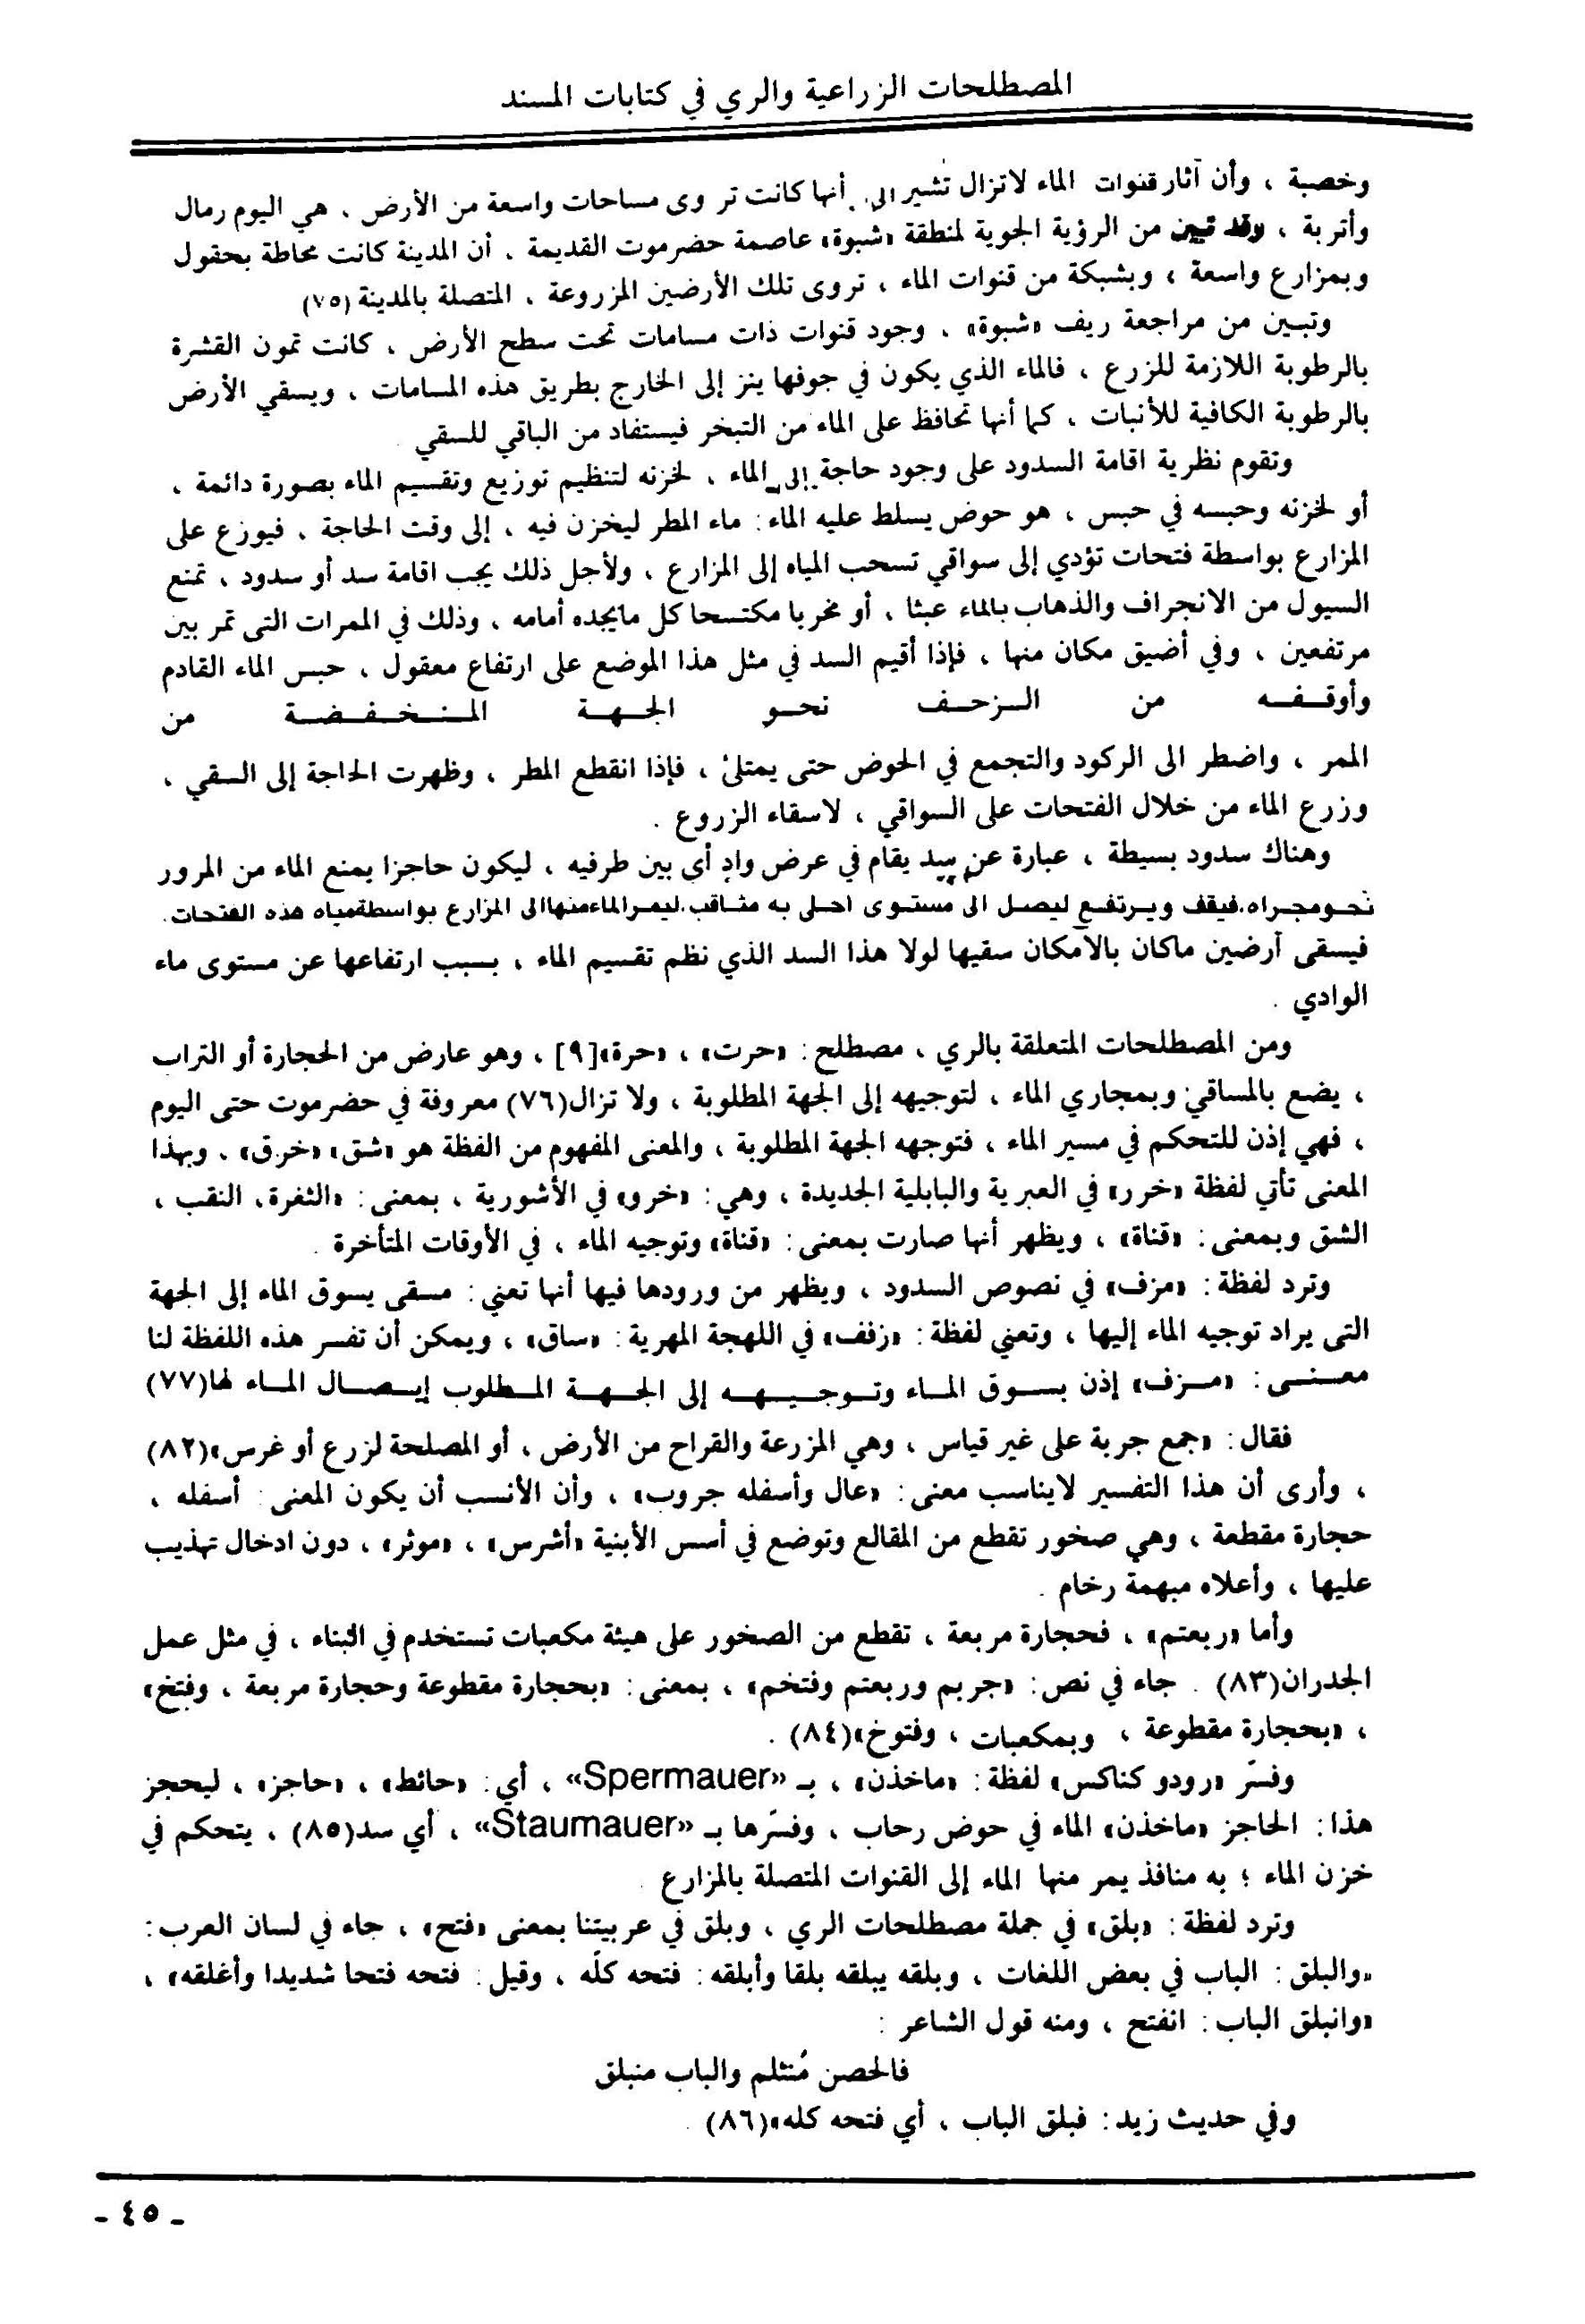 المصطلحات الزراعية والري في كتابات المسند
وخصبة ، وأن آثار قنوات الماء لاتزال تشير الى أنها كانت تروى مساحات واسعة من الأرض ، هي اليوم رمال
وأتربة ، وقد تبين من الرؤية الجوية لمنطقة «شبوة» عاصمة حضرموت القديمة ، أن المدينة كانت محاطة بحقول
وبمزارع واسعة ، وبشبكة من قنوات الماء ، تروى تلك الأرضين المزروعة ، المتصلة بالمدينة (٧٥)
وتبين من مراجعة ريف «شبوة» ، وجود قنوات ذات مسامات تحت سطح الأرض ، كانت تمون القشرة
بالرطوبة اللازمة للزرع ، فالماء الذي يكون في جوفها ينز إلى الخارج بطريق هذه المسامات ، ويسقي الأرض
بالرطوبة الكافية للأنبات ، كما أنها تحافظ على الماء من التبخر فيستفاد من الباقي للسقي .
وتقوم نظرية اقامة السدود على وجود حاجة إلى الماء ، لخزنه لتنظيم توزيع وتقسيم الماء بصورة دائمة ،
أو لخزنه وحبسه في حبس ، هو حوض يسلط عليه الماء : ماء المطر ليخزن فيه ، إلى وقت الحاجة ، فيوزع على
المزارع بواسطة فتحات تؤدي إلى سواقي تسحب المياه إلى المزارع ، ولأجل ذلك يجب اقامة سد أو سدود ، تمنع
السيول من الانجراف والذهاب بالماء عبثا ، أو مخربا مكتسحا كل مايجده أمامه ، وذلك في الممرات التى تمر بين
مرتفعين ، وفي أضيق مكان منها ، فإذا أقيم السد في مثل هذا الموضع على ارتفاع معقول ، حبس الماء القادم
وأوقفه من الزحف نحو الجهة المنخفضة من
الممر ، واضطر الى الركود والتجمع في الحوض حتى يمتلئ ، فإذا انقطع المطر ، وظهرت الحاجة إلى السقي ،
وزرع الماء من خلال الفتحات على السواقي ، لاسقاء الزروع .
وهناك سدود بسيطة ، عبارة عن سد يقام في عرض وادٍ أي بين طرفيه ، ليكون حاجزا يمنع الماء من المرور
نحومجراه،فيقف ويرتفع ليصل الى مستوى احلى به مثاقب،ليمرالماءمنهاالى المزارع بواسطةمياه هذه الفتحات.
فيسقى أرضين ماكان بالأمكان سقيها لولا هذا السد الذي نظم تقسيم الماء ، بسبب ارتفاعها عن مستوى ماء
الوادي .
ومن المصطلحات المتعلقة بالري ، مصطلح : «حرت» ، «حرة»[٩] ، وهو عارض من الحجارة أو التراب
، يضع بالمساقي وبمجاري الماء ، لتوجيهه إلى الجهة المطلوبة ، ولا تزال(٧٦) معروفة في حضرموت حتى اليوم
، فهي إذن للتحكم في مسير الماء ، فتوجهه الجهة المطلوبة ، والمعنى المفهوم من الفظة هو «شق» «خرق» ، وبهذا
المعنى تأتي لفظة «خرر» في العبرية والبابلية الجديدة ، وهي : «خرو» في الأشورية ، بمعنى : «الثغرة، النقب ،
الشق وبمعنى : «قناة» ، ويظهر أنها صارت بمعنى : «قناة» وتوجيه الماء ، في الأوقات المتأخرة .
وترد لفظة : «مزف» في نصوص السدود ، ويظهر من ورودها فيها أنها تعني : مسقى يسوق الماء إلى الجهة
التى يراد توجيه الماء إليها ، وتعني لفظة : «زفف» في اللهجة المهرية : «ساق» ، ويمكن أن تفسر هذه اللفظة لنا
معنى : «مزف» إذن بسوق الماء وتوجيهه إلى الجهة المطلوب إيصال الماء لها(٧٧)
فقال : «جمع جربة على غير قياس ، وهي المزرعة والقراح من الأرض ، أو المصلحة لزرع أو غرس»(٨٢)
، وأرى أن هذا التفسير لايناسب معنى : «عال وأسفله جروب» ، وأن الأنسب أن يكون المعنى : أسفله ،
حجارة مقطعة ، وهي صخور تقطع من المقالع وتوضع في أسس الأبنية «أشرس» ، «موثر» ، دون ادخال تهذيب
عليها ، وأعلاه مبهمة رخام .
وأما «ربعتم» ، فحجارة مربعة ، تقطع من الصخور على هيئة مكعبات تستخدم في البناء ، في مثل عمل
الجدران(٨٣) . جاء في نص : «جربم وربعتم وفتخم» ، بمعنى : «بحجارة مقطوعة وحجارة مربعة ، وفتخ»
، «بحجارة مقطوعة ، وبمكعبات ، وفتوخ»(٨٤) .
وفسّر «رودو كناكس» لفظة : «ماخذن» ، بـ «Spermauer» ، أي : «حائط» ، «حاجز» ، ليحجز
هذا : الحاجز «ماخذن» الماء في حوض رحاب ، وفسّرها بـ «Staumauer» ، أي سد(٨٥) ، يتحكم في
خزن الماء ؛ به منافذ يمر منها الماء إلى القنوات المتصلة بالمزارع .
وترد لفظة : «بلق» في جملة مصطلحات الري ، وبلق في عربيتنا بمعنى «فتح» ، جاء في لسان العرب :
«والبلق : الباب في بعض اللغات ، وبلقه يبلقه بلقا وأبلقه : فتحه كلّه ، وقيل : فتحه فتحا شديدا وأغلقه» ،
«وانبلق الباب : انفتح ، ومنه قول الشاعر :
فالحصن مُنثلم والباب منبلق
وفي حديث زيد : فبلق الباب ، أي فتحه كله»(٨٦) .
- ٤٥ -